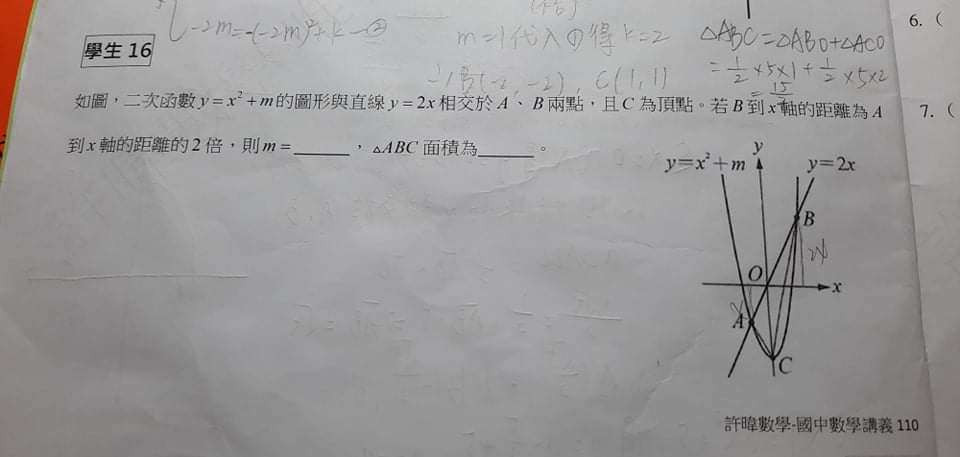 -2m=-(-2m)²+k-②
m=1代入①得k=2
△ABC=△ABO+△ACO
6. (
學生 16
B(-2,-2), C(1,1)
=½×5×1+½×5×2
=15
如圖，二次函數 y = x² + m 的圖形與直線 y = 2x 相交於 A、B 兩點，且 C 為頂點。若 B 到 x 軸的距離為 A
7. (
到 x 軸的距離的 2 倍，則 m = ______，△ABC 面積為______。
y
y=x²+m
y=2x
B
O
x
A
C
許暐數學-國中數學講義 110